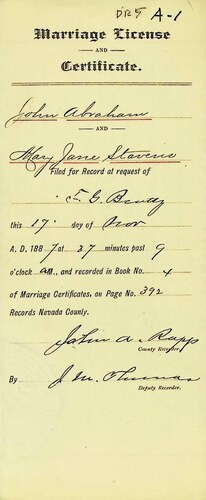 DR5 A-1
Marriage License
AND
Certificate.
John Abraham
AND
Mary Jane Stevens
Filed for Record at request of
this 17 day of Nov
A. D. 1887 at 37 minutes past 9
o'clock AM, and recorded in Book No. 4
of Marriage Certificates, on Page No. 392
Records Nevada County.
John A. Rapp
County Recorder.
By J. M. Thomas
Deputy Recorder.